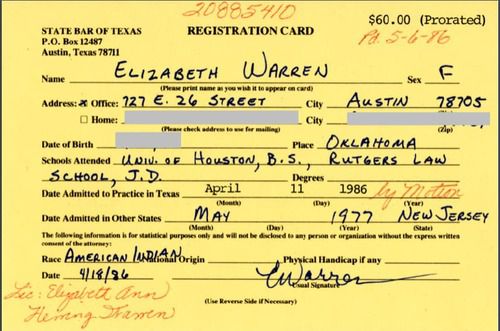 20885410
$60.00 (Prorated)
STATE BAR OF TEXAS REGISTRATION CARD Pd. 5-6-86
P.O. Box 12487
Austin, Texas 78711
Name ELIZABETH WARREN Sex F
(Please print name as you wish it to appear on card)
Address: x Office: 727 E. 26 STREET City AUSTIN 78705
(Zip)
Home: City
(Please check address to use for mailing) (Zip)
Date of Birth Place OKLAHOMA
Schools Attended UNIV. OF HOUSTON, B.S., RUTGERS LAW
SCHOOL, J.D. Degrees
Date Admitted to Practice in Texas April 11 1986 by Motion
(Month) (Day) (Year)
Date Admitted in Other States MAY 1977 NEW JERSEY
(Month) (Day) (Year) (State)
The following information is for statistical purposes only and will not be disclosed to any person or organization without the express written
consent of the attorney:
Race AMERICAN INDIAN National Origin Physical Handicap if any
Date 4/18/86 EWarren
Usual Signature
Lic: Elizabeth Ann
Herring Warren
(Use Reverse Side if Necessary)